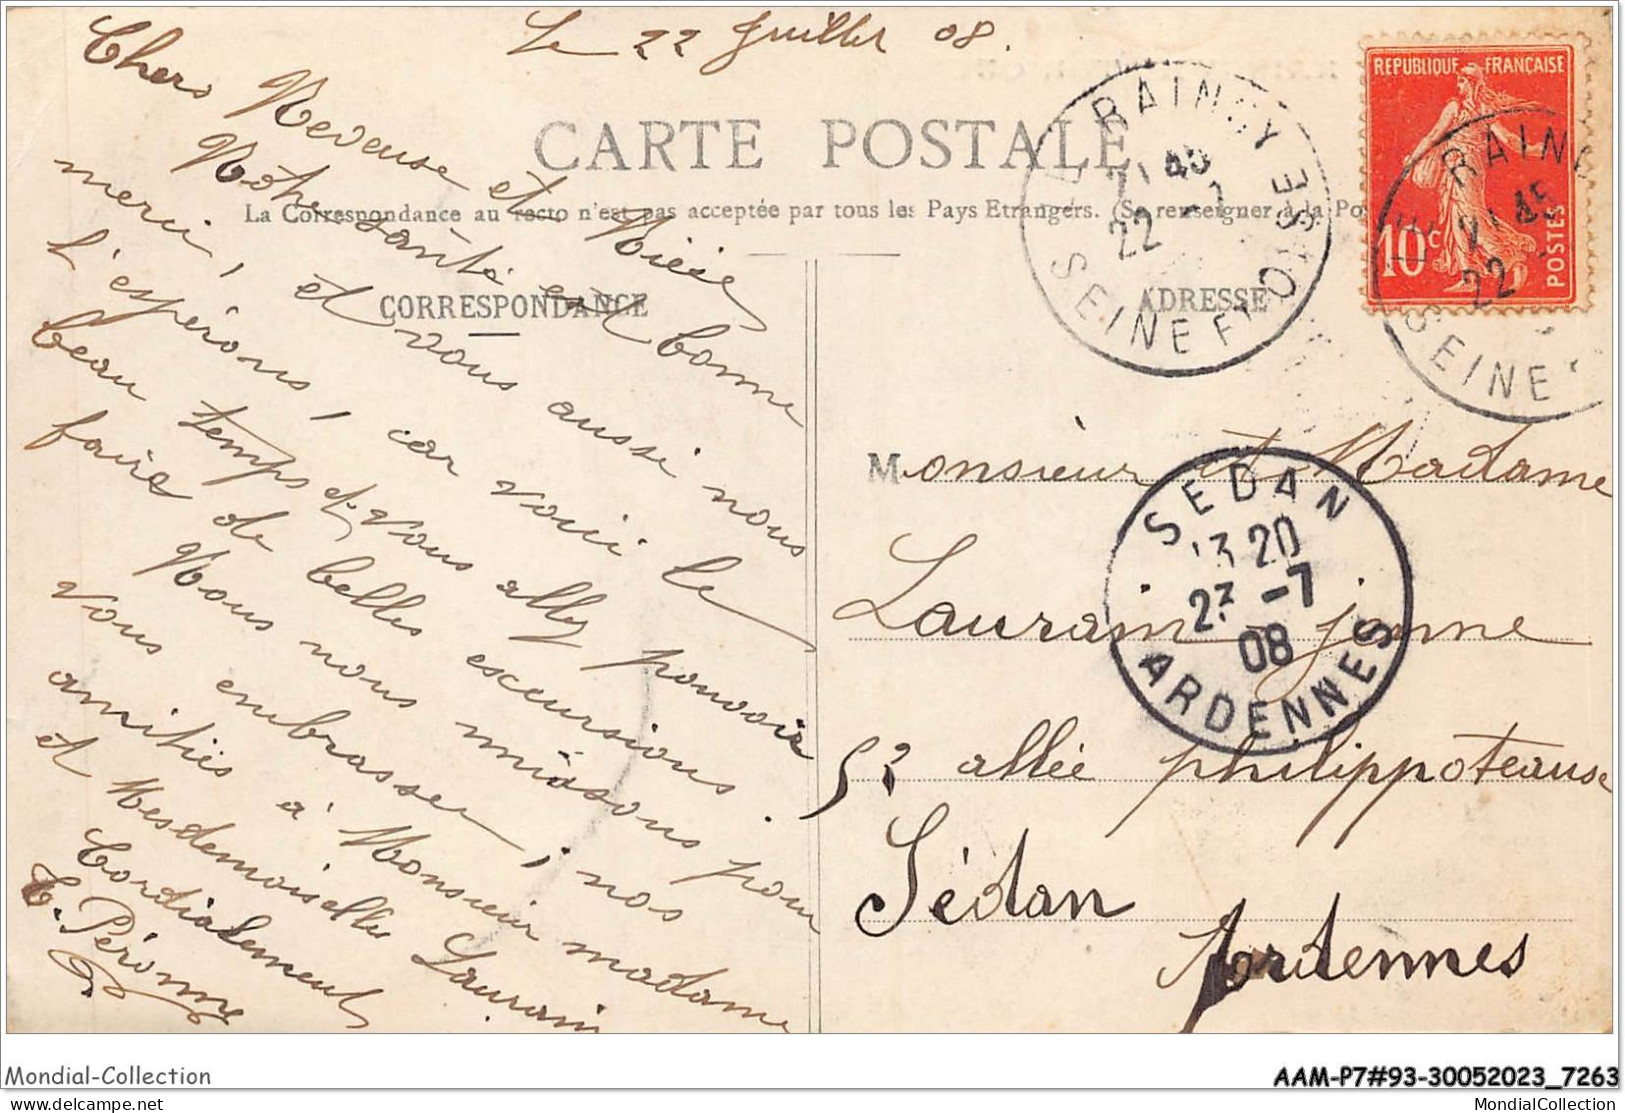 Le 22 Juillet 08.
Chers Neveuse et Nièce
Notre santé est bonne
merci, et vous aussi nous
l'espérons, car voici le
beau temps et vous allez pouvoir
faire de belles escursions
Nous nous unissons pour
vous embrasser, nos
amitiés à Monsieur madame
et Mesdemoiselles Laurain
Cordialement
C. Péronne
CARTE POSTALE
La Correspondance au recto n'est pas acceptée par tous les Pays Etrangers. (Se renseigner à la Po
CORRESPONDANCE
ADRESSE
LE RAINCY
21 45
22 -7
SEINE ET OISE
REPUBLIQUE FRANÇAISE
10c
POSTES
LE RAINC
21 45
22
SEINE
Monsieur et Madame
Laurain jeune
52 allée philippoteause
Sédan
Ardennes
SEDAN
13 20
23 -7
08
ARDENNES
Mondial-Collection
AAM-P7#93-30052023_7263
delcampe.net
MondialCollection